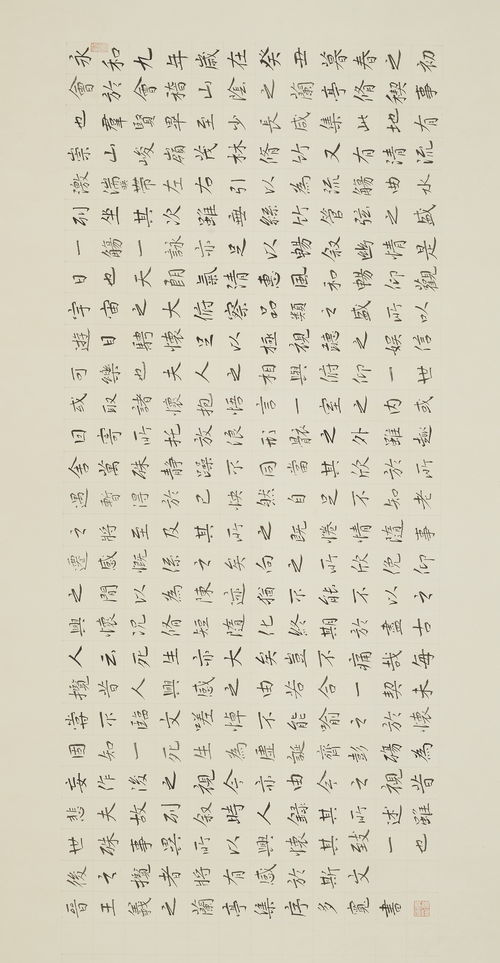 永和九年歲在癸丑暮春之初
會於會稽山陰之蘭亭脩禊事
也羣賢畢至少長咸集此地有
崇山峻嶺茂林脩竹又有清流
激湍帶左右引以為流觴曲水
列坐其次雖無絲竹管弦之盛
一觴一詠亦足以暢敘幽情是
日也天朗氣清惠風和暢仰觀
宇宙之大俯察品類之盛所以
遊目騁懷足以極視聽之娛信
可樂也夫人之相與俯仰一世
或取諸懷抱悟言一室之內或
因寄所托放浪形骸之外雖趣
舍萬殊静躁不同當其欣於所
遇暫得於己怏然自足不知老
之將至及其所之既倦情隨事
遷感慨係之矣向之所欣俛仰
之間以為陳迹猶不能不以之
興懷況脩短隨化終期於盡古
人云死生亦大矣豈不痛哉每
攬昔人興感之由若合一契未
嘗不臨文嗟悼不能喻之於懷
固知一死生為虛誕齊彭殤為
妄作後之視今亦由今之視昔
悲夫故列敘時人錄其所述雖
世殊事異所以興懷其致一也
後之攬者將有感於斯文
晉王羲之蘭亭集序多寬書